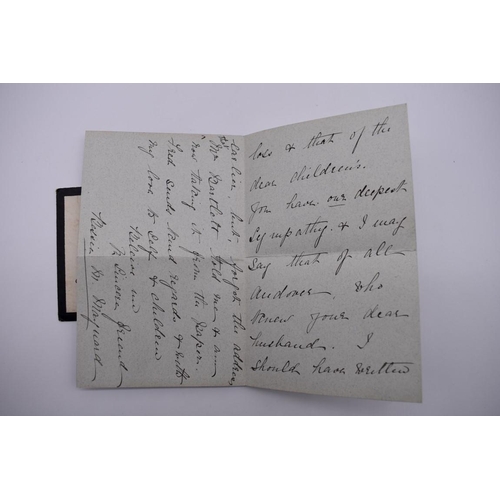 loss & that of the
dear children's.
You have our deepest
Sympathy & I may
Say that of all
Andover, who
knew your dear
husband. I
Should have written
earlier but forgot the address
Mr Bartlett told me & am
now taking it from the paper.
Fred sends kind regards & with
my love to Self & children
Believe me
Yr Sincere friend
M Maynard